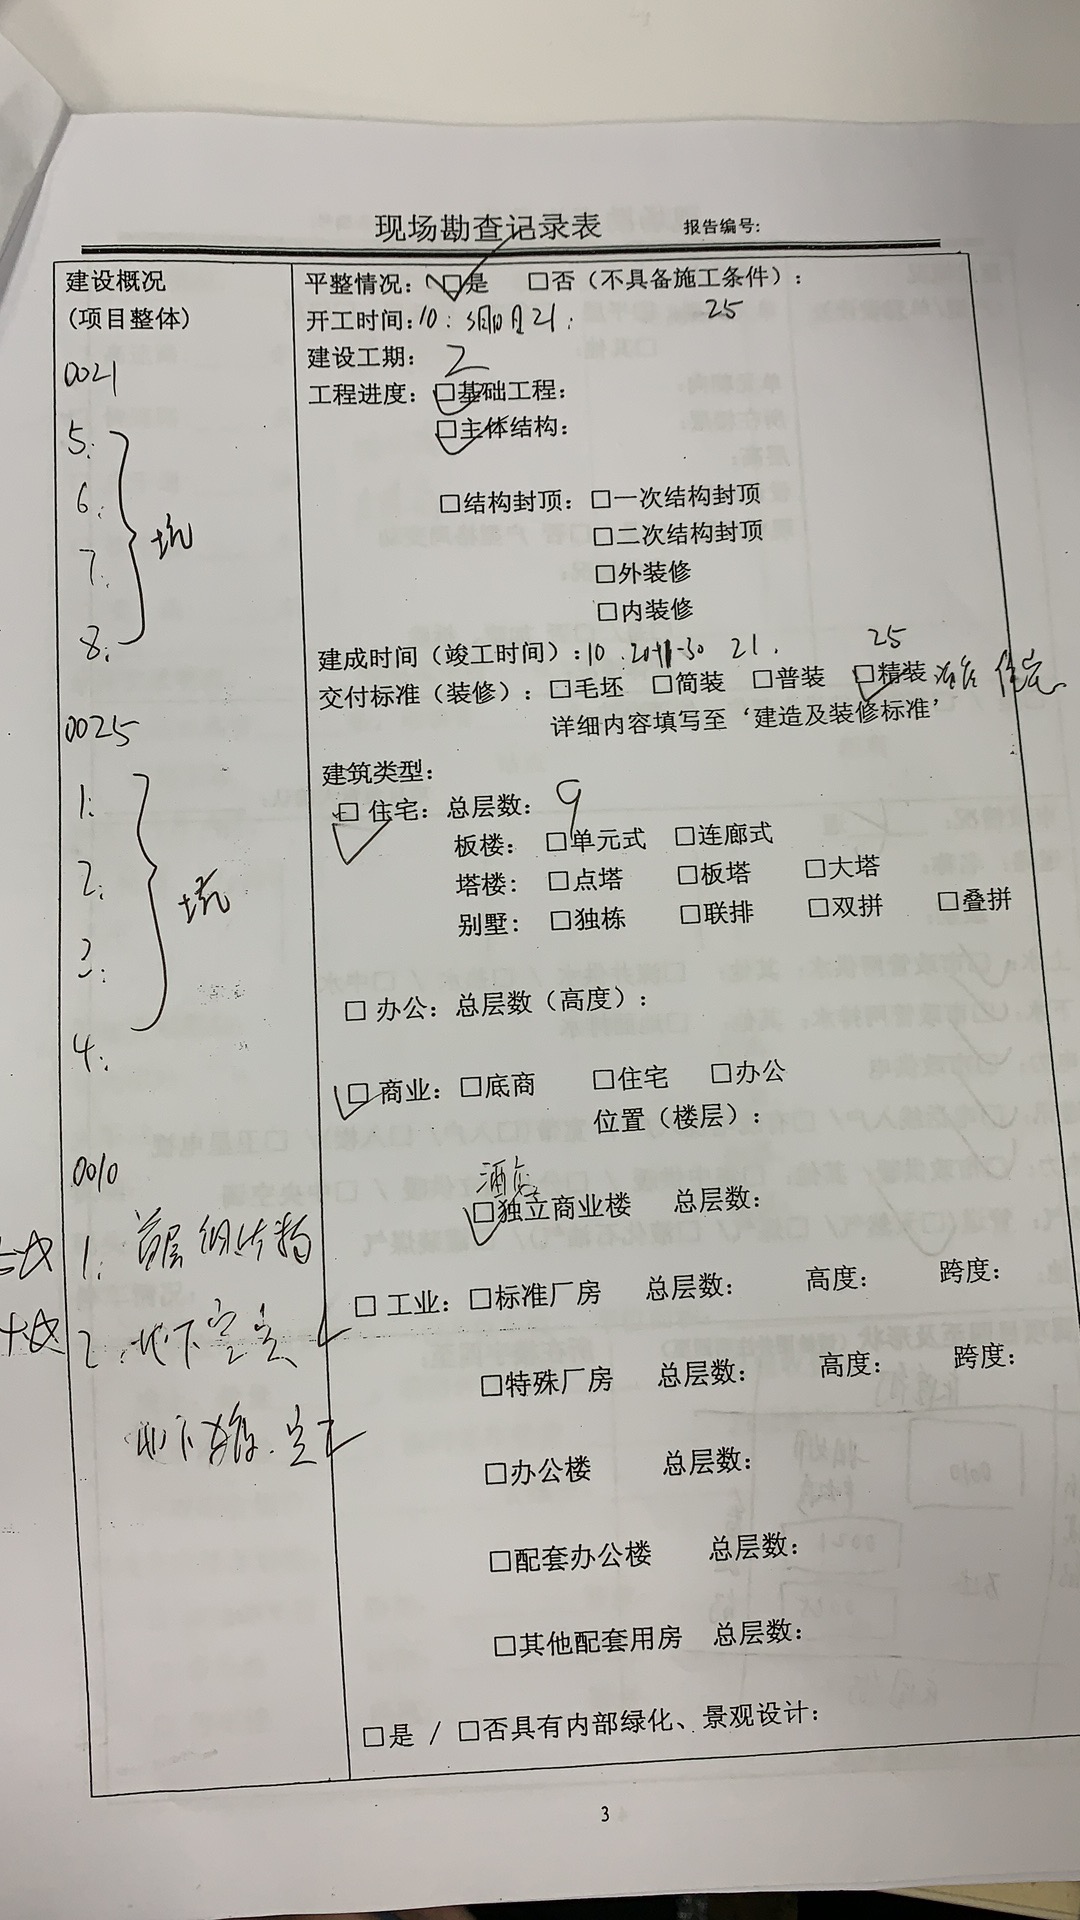 现场勘查记录表 报告编号:
建设概况
(项目整体)
0021
5:
6:
7:
8:
坑
0025
1:
2:
3:
4:
坑
0010
1: 首层 钢结构
2: 地下室
地下
平整情况: □是 □否(不具备施工条件):
开工时间: 10: 21: 25
建设工期: 2
工程进度: □基础工程:
□主体结构:
□结构封顶: □一次结构封顶
□二次结构封顶
□外装修
□内装修
建成时间(竣工时间): 10 21. 25
交付标准(装修): □毛坯 □简装 □普装 □精装
详细内容填写至‘建造及装修标准’
建筑类型:
□ 住宅: 总层数: 9
板楼: □单元式 □连廊式
塔楼: □点塔 □板塔 □大塔
别墅: □独栋 □联排 □双拼 □叠拼
□ 办公: 总层数(高度):
□ 商业: □底商 □住宅 □办公
位置(楼层):
酒店
□独立商业楼 总层数:
□ 工业: □标准厂房 总层数: 高度: 跨度:
□特殊厂房 总层数: 高度: 跨度:
□办公楼 总层数:
□配套办公楼 总层数:
□其他配套用房 总层数:
□是 / □否具有内部绿化、景观设计:
3